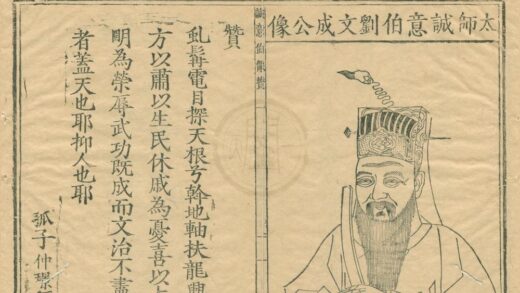 太師誠意伯劉文成公像
贊
虬髯電目探天根兮斡地軸扶龍興
方以肅以生民休戚為憂喜以
明為榮辱武功既成而文治不盡
者蓋天也耶抑人也耶
孤子仲璟